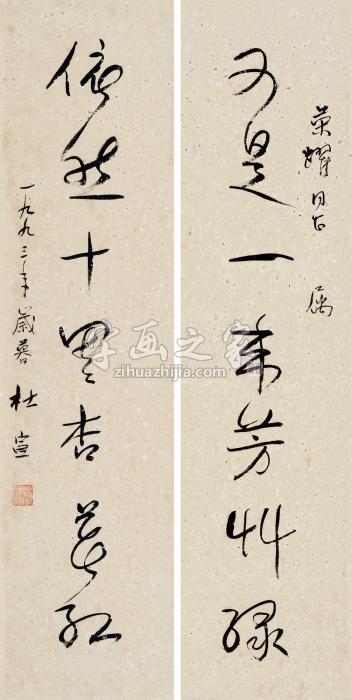 荣耀 属
又是一年芳艸绿
依然十里杏花红
一九九三年歲暮 杜宣
字画之家
zihuazhijia.com